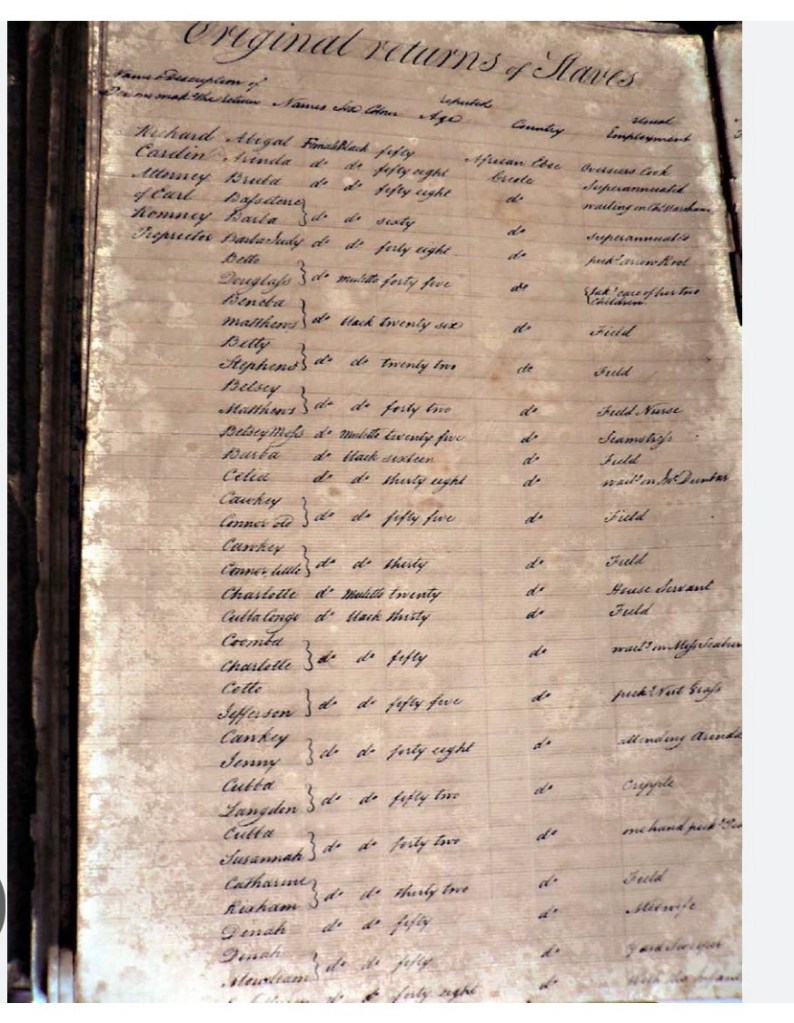 Original returns of Slaves
Names & Description of
Persons making the return Names Sex Colour reputed Age Country Usual Employment
Richard Abigal Female Black fifty African Eboe Overseers Cook
Cardin Arinda do do fifty eight Creole Superannuated
Attorney Breeba do do fifty eight do waiting on
of Earl
Romney Barba } do do sixty do Superannuated
Proprietor Barba Judy do do forty eight do pickg Arrow Root
Bette
Douglass } do Mulatto forty five do { takg care of her two children
Beneba
Matthews } do black twenty six do Field
Betty
Stephens } do do twenty two do Field
Betsey
Matthews } do do forty two do Field Nurse
Betsey Moss do Mulatto twenty five do Seamstress
Barba do black sixteen do Field
Celia do do thirty eight do waitg on Mr Dunbar
Cawkey
Connor old } do do fifty five do Field
Cawkey
Connor little } do do thirty do Field
Charlotte do Mulatto twenty do House Servant
Cubba Congo do black thirty do Field
Coomba
Charlotte } do do fifty do waitg on Miss
Cotto
Jefferson } do do fifty five do pickg Nut Grass
Cawkey
Jenny } do do forty eight do attending Arinda
Cubba
Langden } do do fifty two do Cripple
Cubba
Susannah } do do forty two do one hand pickg
Catharine
Rixham } do do thirty two do Field
Denah do do fifty do Midwife
Denah
} do do fifty do Yard Sweeper
do do forty eight do With the